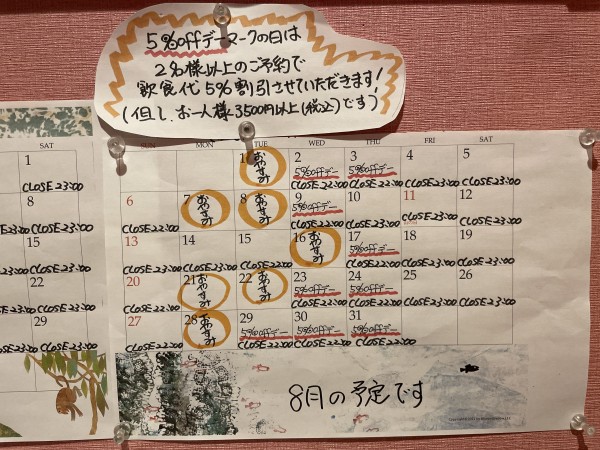 5%offデーマークの日は
2名様以上のご予約で
飲食代5%割引させていただきます!
(但し、お一人様3500円以上(税込)です)
SAT
1
CLOSE 23:00
8
CLOSE 23:00
15
CLOSE 23:00
22
CLOSE 23:00
29
CLOSE 23:00
SUN MON TUE WED THU FRI SAT
1 おやすみ
2 5%offデー CLOSE 22:00
3 5%offデー CLOSE 22:00
4 CLOSE 23:00
5 CLOSE 23:00
6 CLOSE 22:00
7 おやすみ
8 おやすみ
9 5%offデー CLOSE 22:00
10 CLOSE 22:00
11 CLOSE 23:00
12 CLOSE 23:00
13 CLOSE 22:00
14 CLOSE 22:00
15 CLOSE 22:00
16 おやすみ
17 5%offデー CLOSE 22:00
18 CLOSE 23:00
19 CLOSE 23:00
20 CLOSE 22:00
21 おやすみ
22 おやすみ
23 5%offデー CLOSE 22:00
24 5%offデー CLOSE 22:00
25 CLOSE 23:00
26 CLOSE 23:00
27 CLOSE 22:00
28 おやすみ
29 5%offデー CLOSE 22:00
30 5%offデー CLOSE 22:00
31 5%offデー CLOSE 22:00
8月の予定です